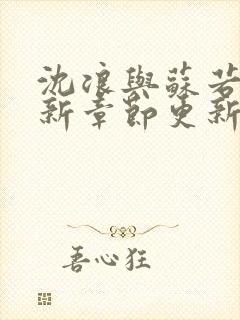 沈浪與蘇若
新章節更新
吾心狂